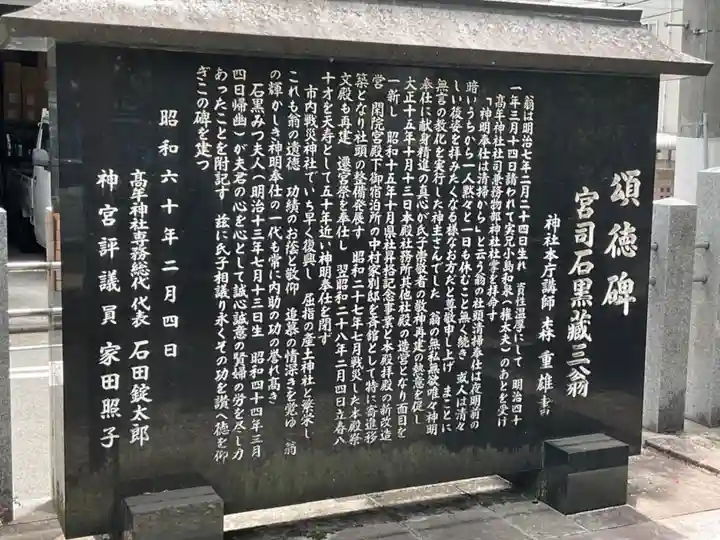 頌徳碑
宮司石黒藏三翁
神社本庁講師 森 重雄 書
翁は明治七年二月二十四日生れ 資性温厚にして 明治四十
一年三月十四日請われて実兄小島和泉(権太夫)のあとを受け
高牟神社社司兼務物部神社社掌を拝命す
「神明奉仕は清掃から」と云う翁の社頭清掃奉仕は夜明前の
暗いうちから一人黙々と一日も休むこと無く続き 或人は清々
しい後姿を拝みたくなる様なお方だと尊敬申し上げ まことに
無言の教化を実行した神主さんでした 翁の無私無欲唯々神明
奉仕に献身精進の真心が氏子崇敬者の敬神再建の熱意を促し
大正十五年十月十三日本殿社務所其他社殿の造営となり面目を
一新し 昭和十五年十月県社昇格記念事業と本殿拝殿の新改造
営 閑院宮殿下御宿泊所の中村家別邸を斉館として特に寄進移
築となり社頭の整備発展す 昭和二十七年七月戦災した本殿祭
文殿も再建 遷宮祭を奉仕し 翌昭和二十八年二月四日立春八
十才を天寿として五十年近い神明奉仕を閉す
市内戦災神社でいち早く復興し 屈指の産土神社と繁栄し
これも翁の遺徳 功績のお蔭と敬仰 追慕の情深きを覚ゆ 翁
の輝かしき神明奉仕の一代も常に内助の功の誉れ高き
石黒みつ夫人(明治十三年七月十三日生 昭和四十四年三月
四日帰幽)が夫君の心を心として誠心誠意の賢婦の労を尽し力
あったことを附記す 茲に氏子相議り永くその功を讃へ徳を仰
ぎこの碑を建つ
昭和六十年二月四日
高牟神社専務総代 代表 石田錠太郎
神宮評議員 家田照子